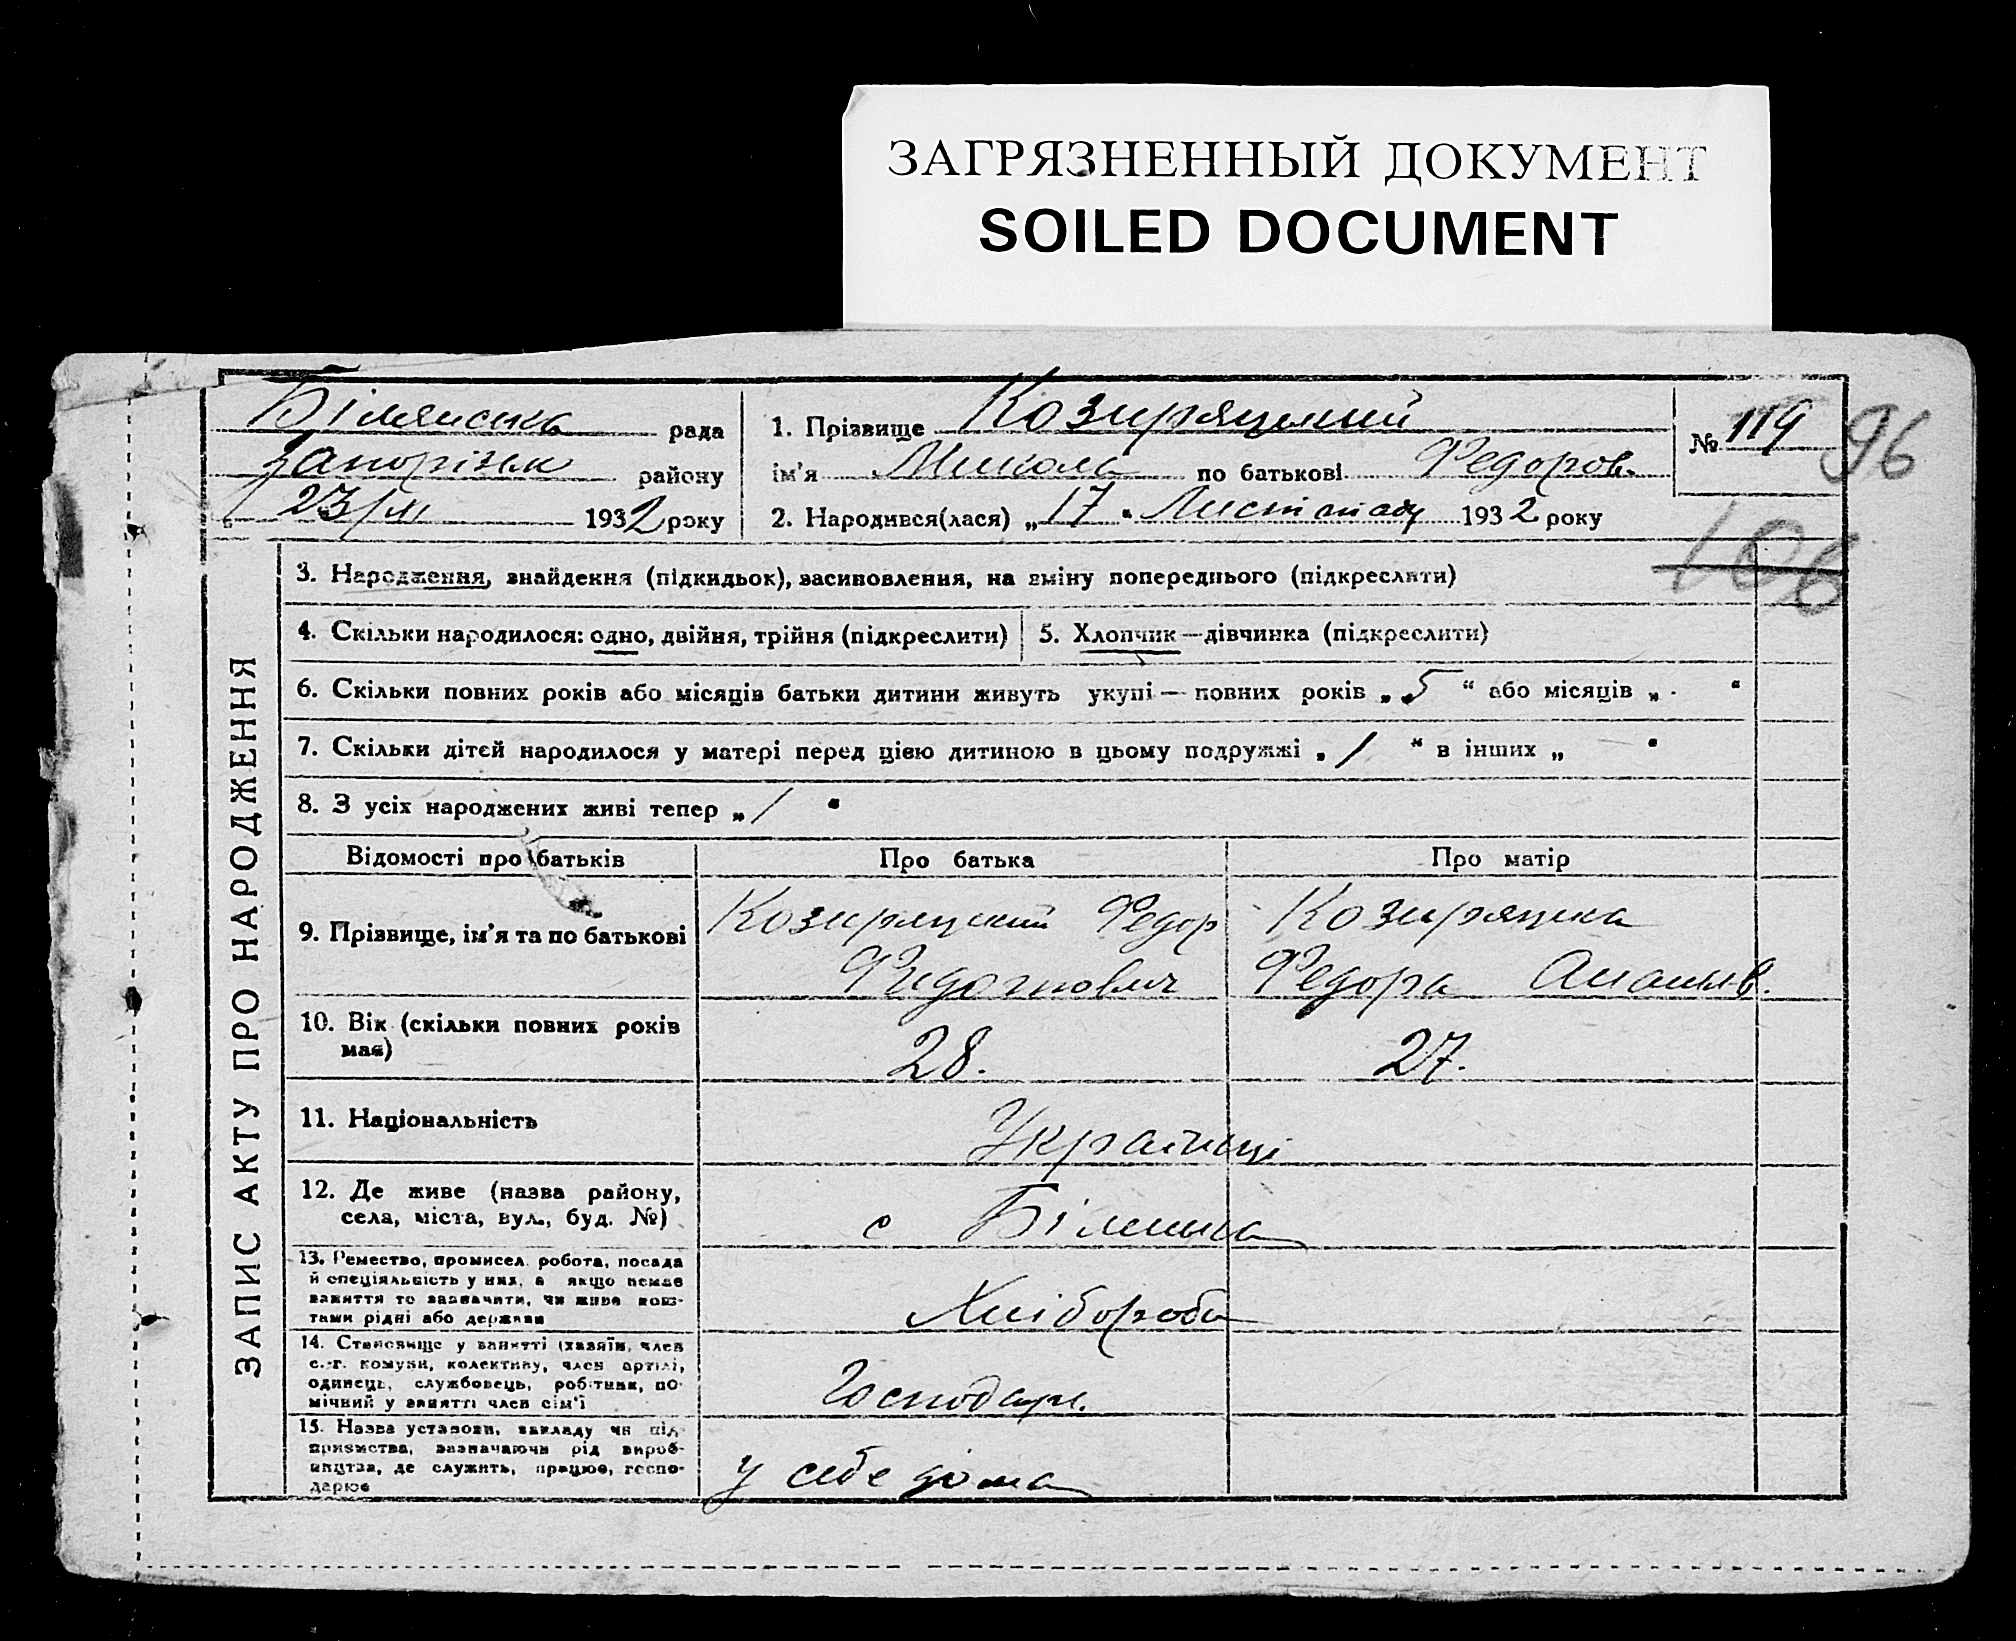 ЗАГРЯЗНЕННЫЙ ДОКУМЕНТ
SOILED DOCUMENT
Білянська рада
Запорізьк району
23/XI 1932 року
1. Прізвище Козиряцький
ім'я Микола по батькові Федоров.
2. Народився(лася) „17" Листопаду 1932 року
№ 119
96
106
ЗАПИС АКТУ ПРО НАРОДЖЕННЯ
3. Народження, знайдення (підкидьок), засиновлення, на зміну попереднього (підкреслити)
4. Скільки народилося: одно, двійня, трійня (підкреслити)
5. Хлопчик—дівчинка (підкреслити)
6. Скільки повних років або місяців батьки дитини живуть укупі — повних років „5“ або місяців „-“
7. Скільки дітей народилося у матері перед цією дитиною в цьому подружжі „1“ в інших „—“
8. З усіх народжених живі тепер „1“
Відомості про батьків
Про батька
Про матір
9. Прізвище, ім'я та по батькові
Козиряцький Федор
Козиряцька
Федора
10. Вік (скільки повних років має)
28.
27.
11. Національність
Українці
12. Де живе (назва району,
села, міста, вул., буд. №)
с
13. Ремество, промисел, робота, посада
й спеціяльність у них, а якщо немає
заняття то зазначити, чи живе кош-
тами рідні або держави
Хлібороби
14. Становище у занятті (хазяїн, член
с.-г. комуни, колективу, член артілі,
одинець, службовець, робітник, по-
мічний у занятті член сім'ї
Господарі.
15. Назва установи, закладу чи під-
приємства, зазначаючи рід вироб-
ництва, де служить, працює, госпо-
дарює
у себе дома